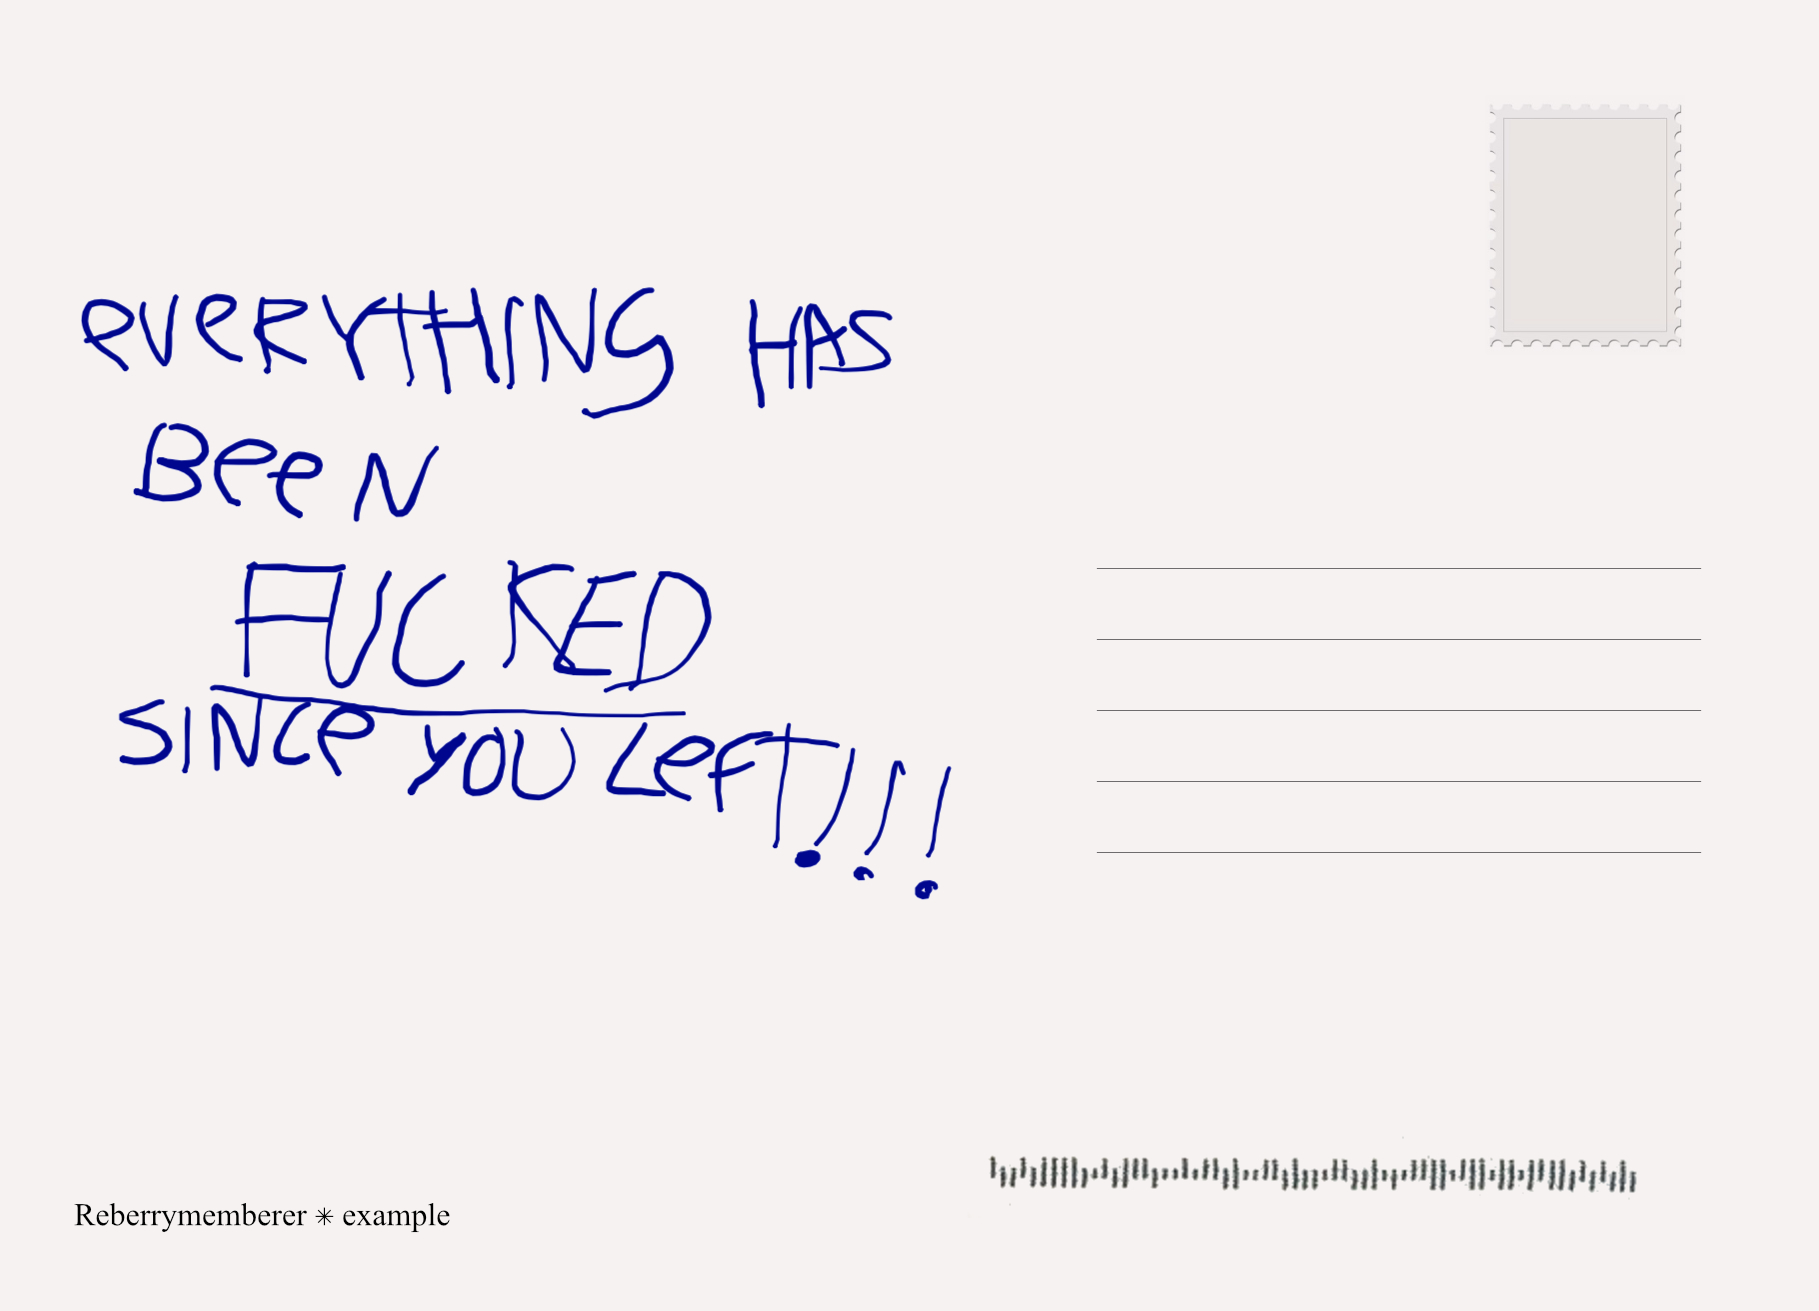 eVeRYTHING HAS
BeeN
FUCKED
SINCe YOU LefT!!!
Reberrymemberer ✳ example